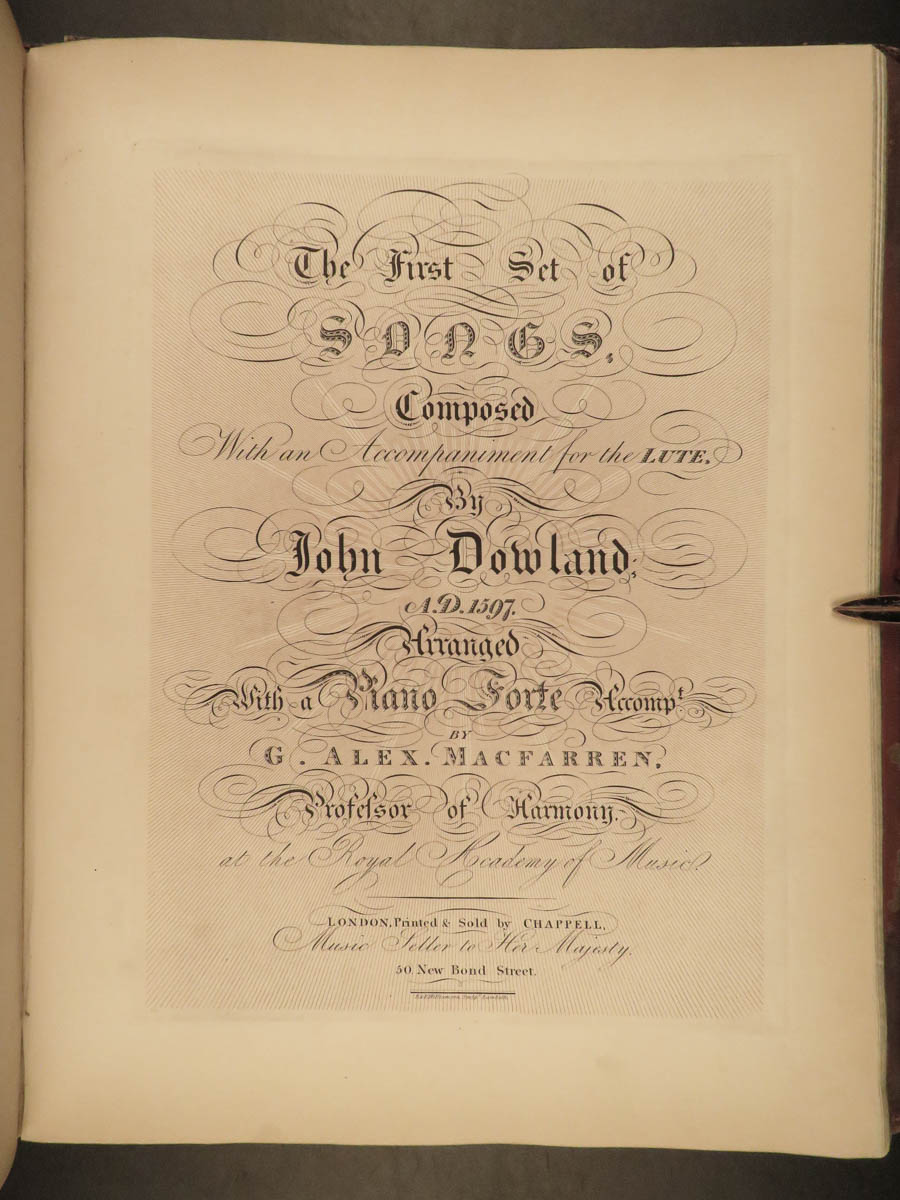 The First Set of
SONGS,
Composed
With an Accompaniment for the LUTE,
By
John Dowland;
A.D. 1597.
Arranged
With a Piano Forte Accompt.
BY
G. ALEX. MACFARREN,
Profeſsor of Harmony.
at the Royal Academy of Music.
LONDON, Printed & Sold by CHAPPELL,
Music Seller to Her Majesty.
50, New Bond Street.